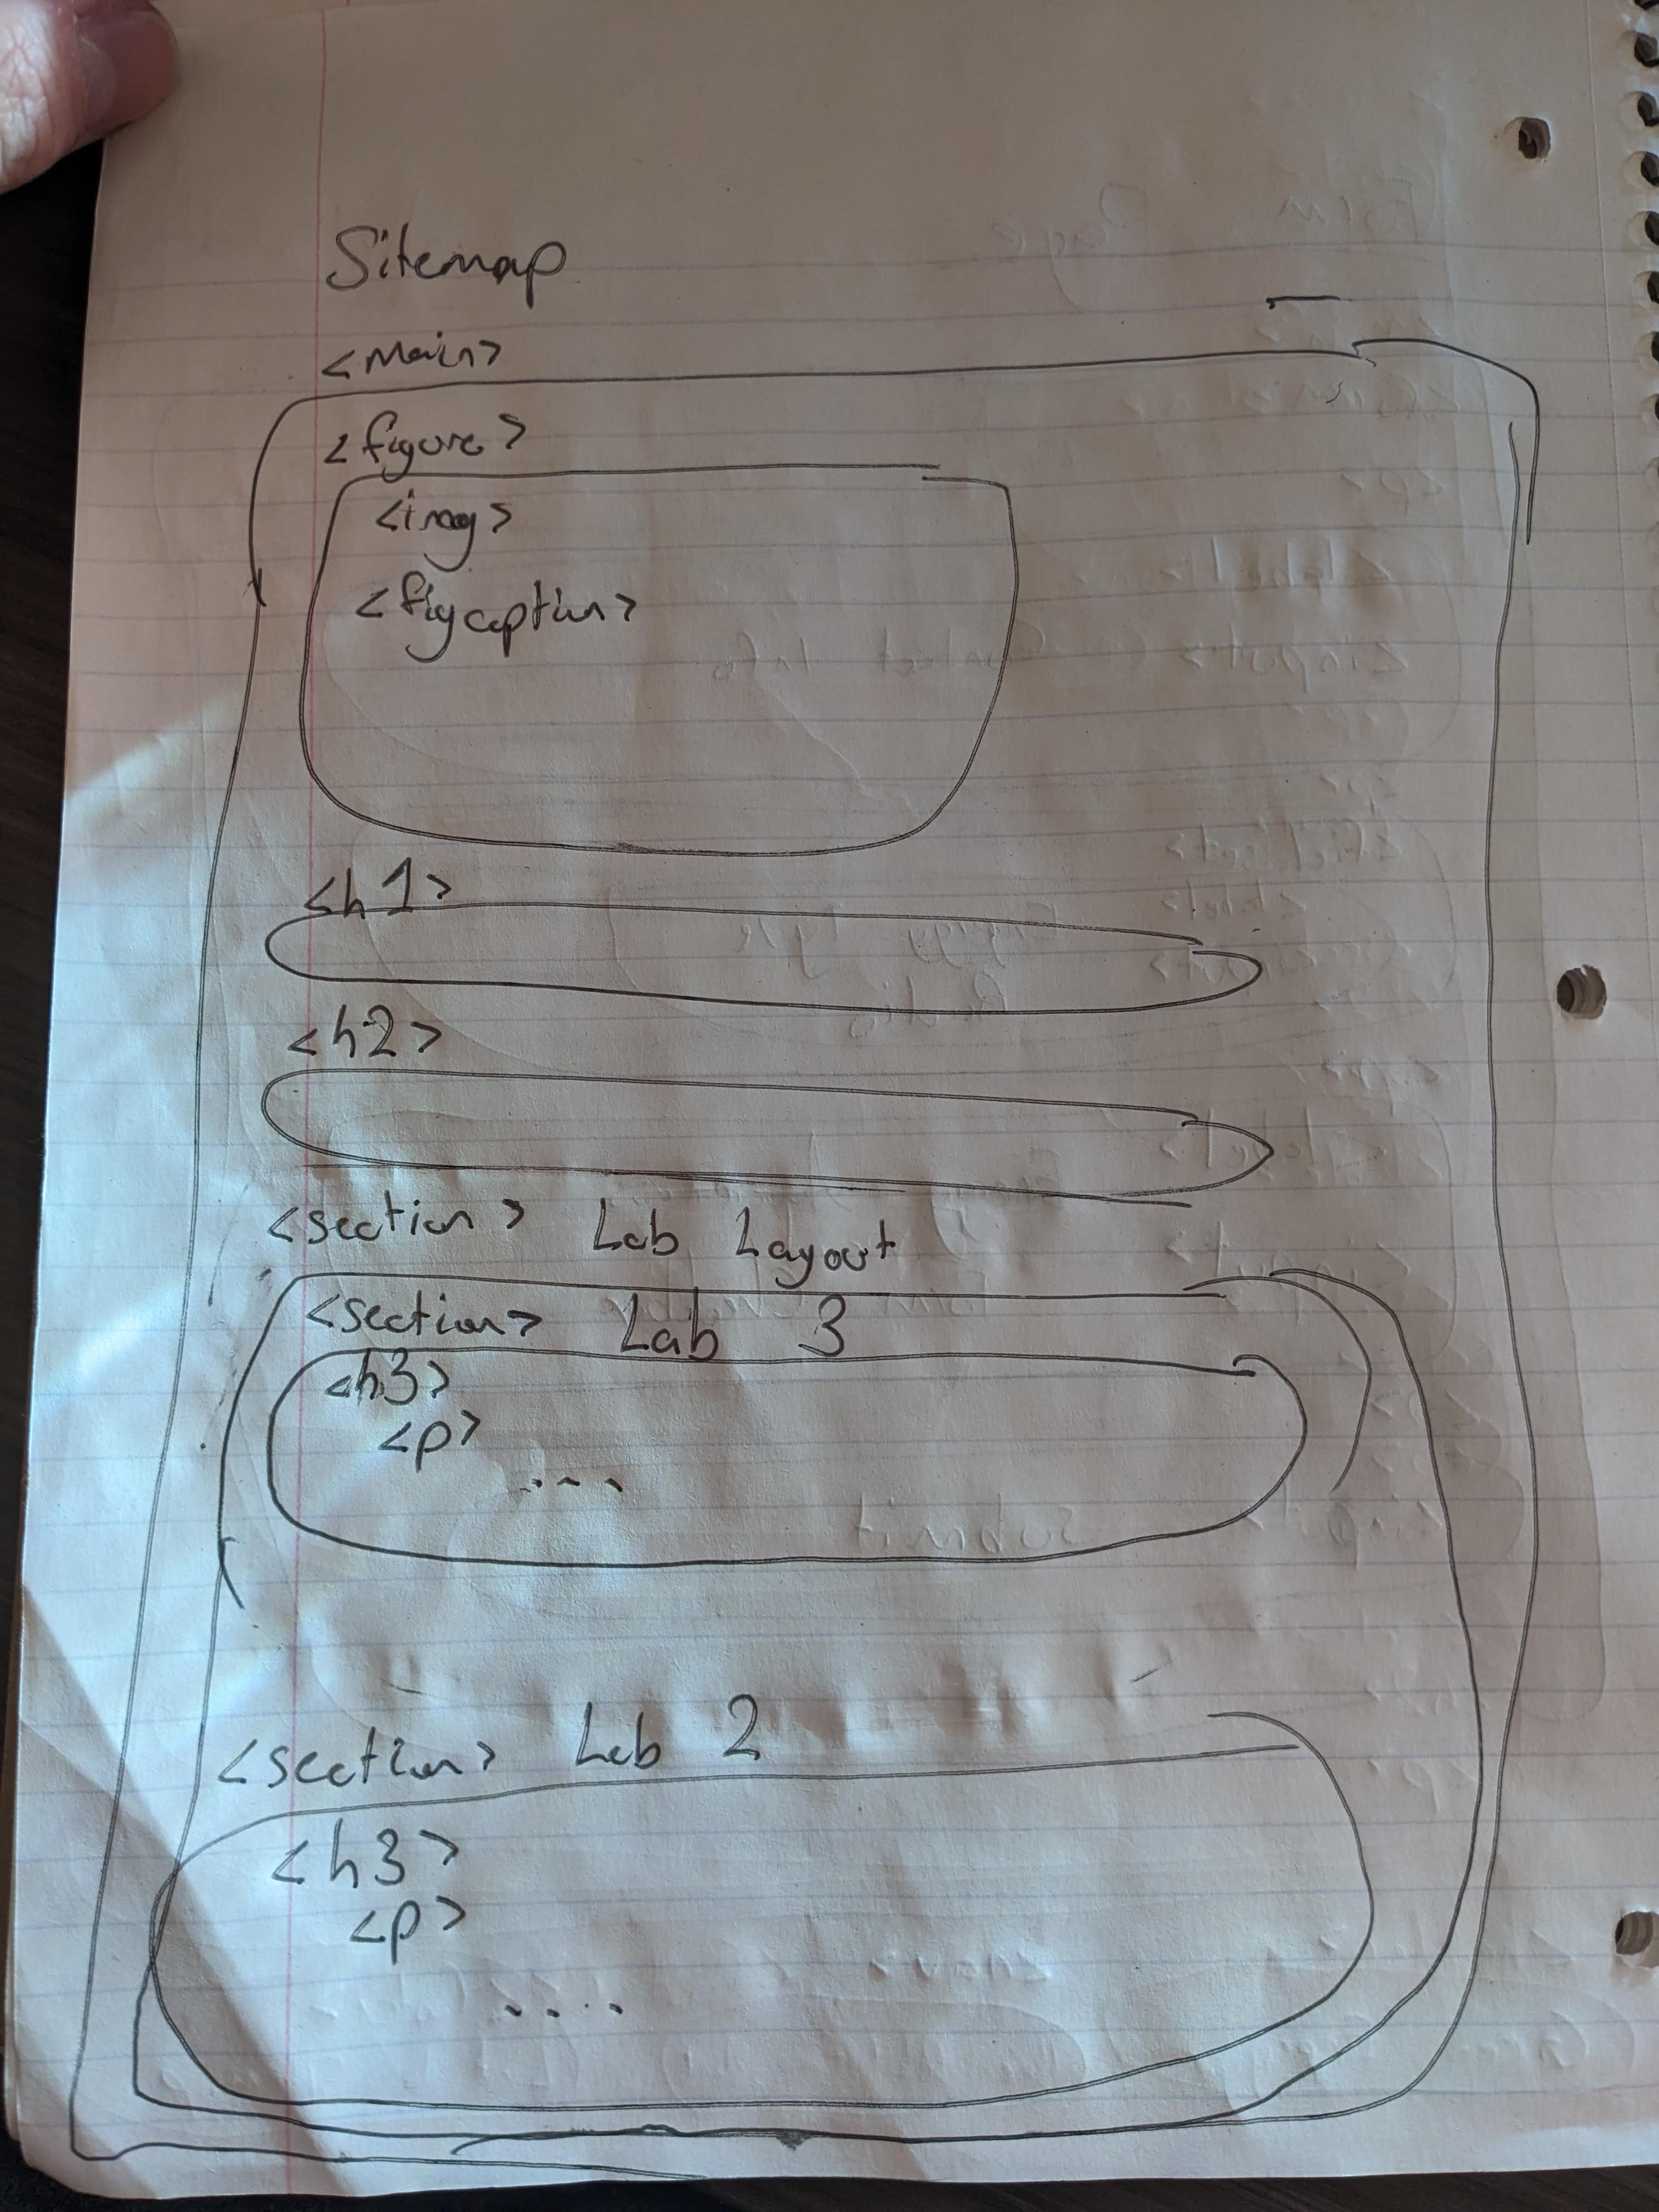 Sitemap
<main>
<figure>
<img>
<figcaption>
<h1>
<h2>
<section> Lab Layout
<section> Lab 3
<h3>
<p>
...
<section> Lab 2
<h3>
<p>
....